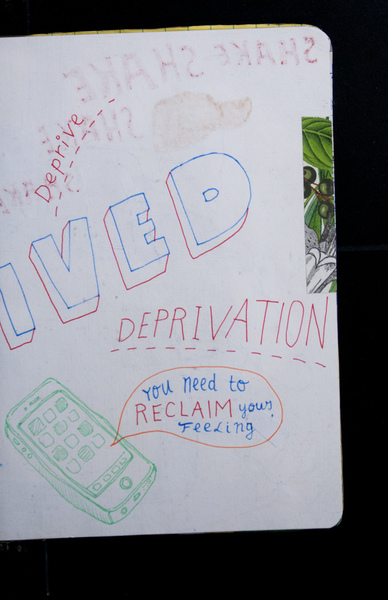 SHAKE SHAKE
Deprive
IVED
DEPRIVATION
You Need to
RECLAIM your
FeeLing